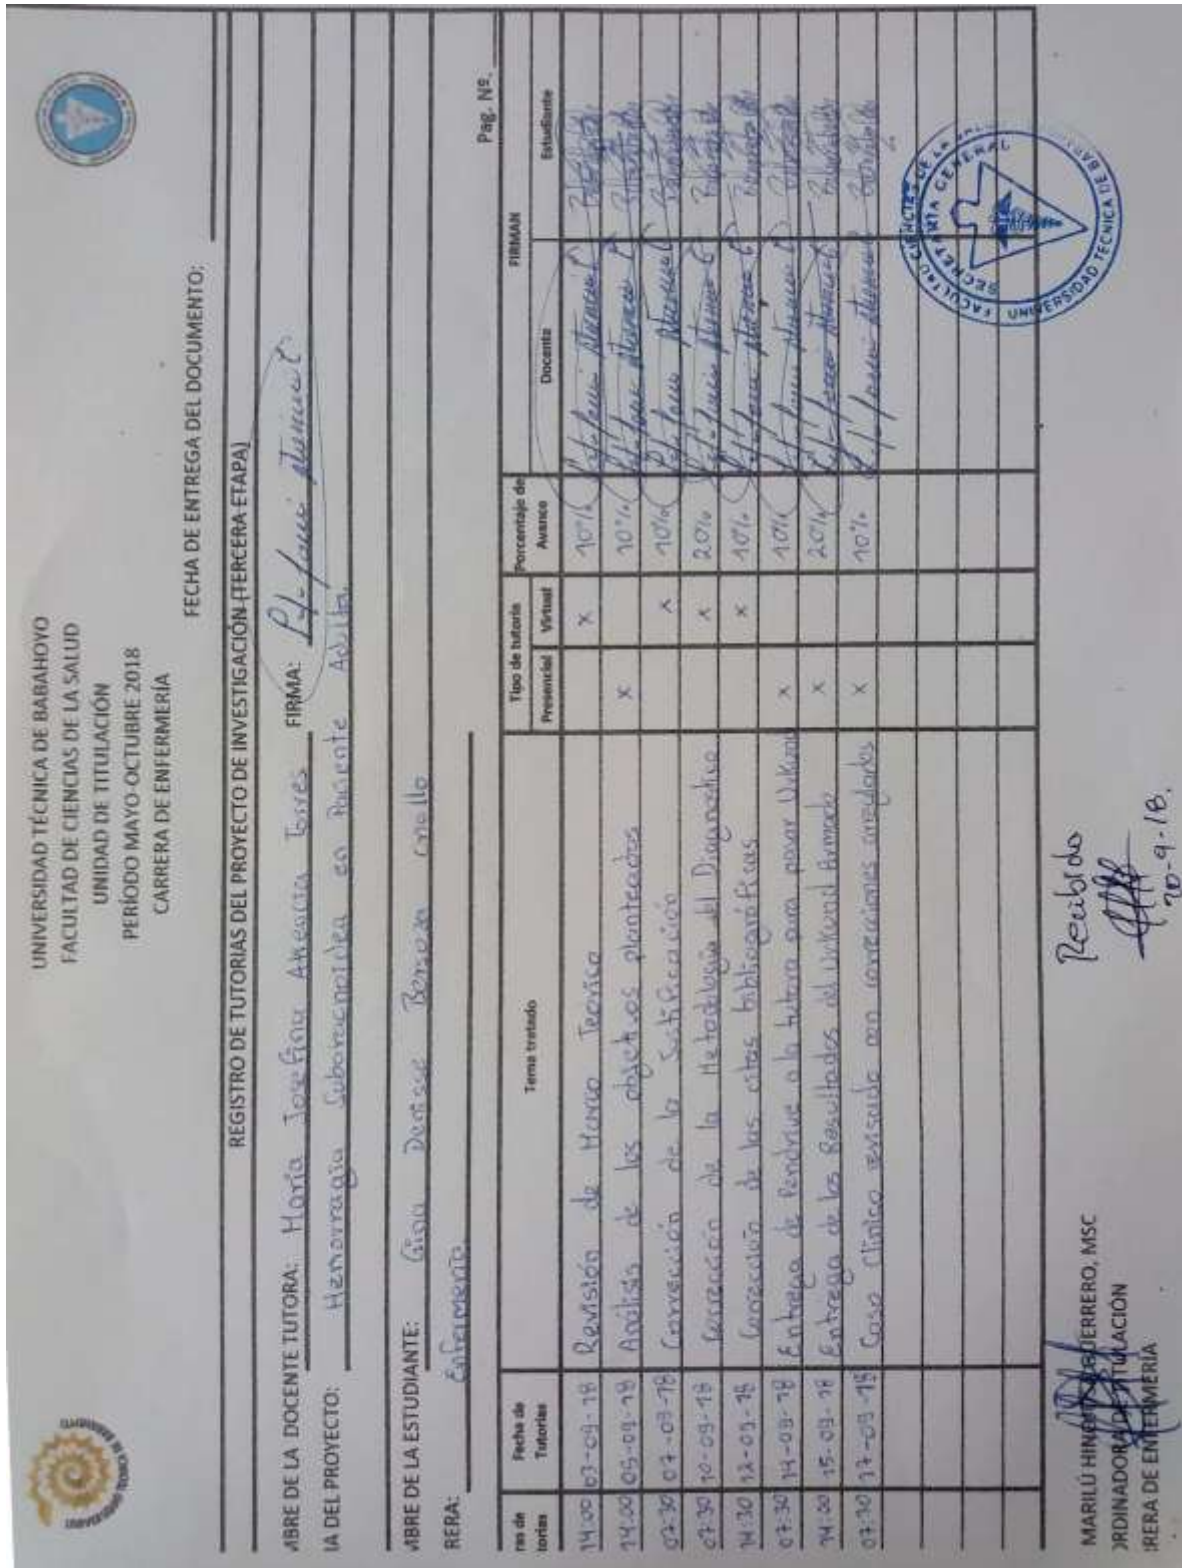 UNIVERSIDAD TÉCNICA DE BABAHOYO
FACULTAD DE CIENCIAS DE LA SALUD
UNIDAD DE TITULACIÓN
PERÍODO MAYO-OCTUBRE 2018
CARRERA DE ENFERMERÍA
FECHA DE ENTREGA DEL DOCUMENTO:
REGISTRO DE TUTORIAS DEL PROYECTO DE INVESTIGACIÓN (TERCERA ETAPA)
MBRE DE LA DOCENTE TUTORA: María Josefina Torres FIRMA:
IA DEL PROYECTO: Hemorragia Subaracnoidea en Paciente Adulto
MBRE DE LA ESTUDIANTE: Criollo
RERA: Enfermería
Pag. Nº.
ras de torias Fecha de Tutorias Tema tratado Tipo de tutoria Porcentaje de Avance FIRMAN
Presencial Virtual Docente Estudiante
14:00 03-09-18 Revisión de Marco Teorico x 10%
14:00 05-09-18 Análisis de los objetivos planteados x 10%
07:30 07-09-18 Corrección de la x 10%
07:30 10-09-18 Corrección de la Metodologia del Diagnostico x 20%
14:30 12-09-18 Corrección de las citas bibliográficas x 10%
07:30 14-09-18 Entrega de Pendrive a la tutora para pasar Urkund x 10%
14:20 15-09-18 Entrega de los Resultados del Urkund firmado x 20%
07:30 17-09-18 Caso Clinico revisado con correcciones x 10%
FACULTAD CIENCIAS DE LA
SECRETARIA GENERAL
UNIVERSIDAD TECNICA DE
Recibido
-9-18.
MARILÚ GUERRERO, MSC
ORDINADORA TITULACIÓN
RERA DE ENFERMERÍA